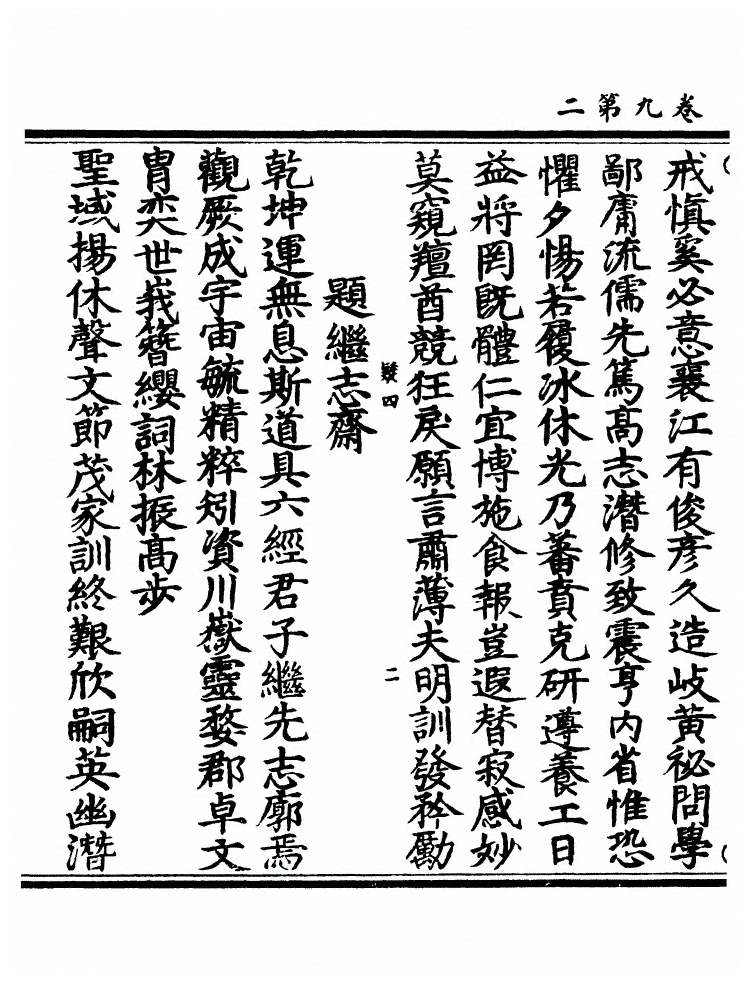 卷九第二
戒慎奚必意襄江有俊彥久造岐黃祕問學
鄙庸流儒先篤髙志潛修致震亨內省惟恐
懼夕惕若履冰休光乃蕃賁克研遵養工日
益將罔旣體仁宜博施食報豈遐替寂感妙
莫窺羶酋競狂戾願言肅薄夫明訓發矜勵
疑四
二
題繼志齋
乾坤運無息斯道具六經君子繼先志廓焉
觀厥成宇宙毓精粹矧資川嶽靈婺郡卓文
胄奕世峩簪纓詞林振髙步
聖域揚休聲文節茂家訓終艱欣嗣英幽潛